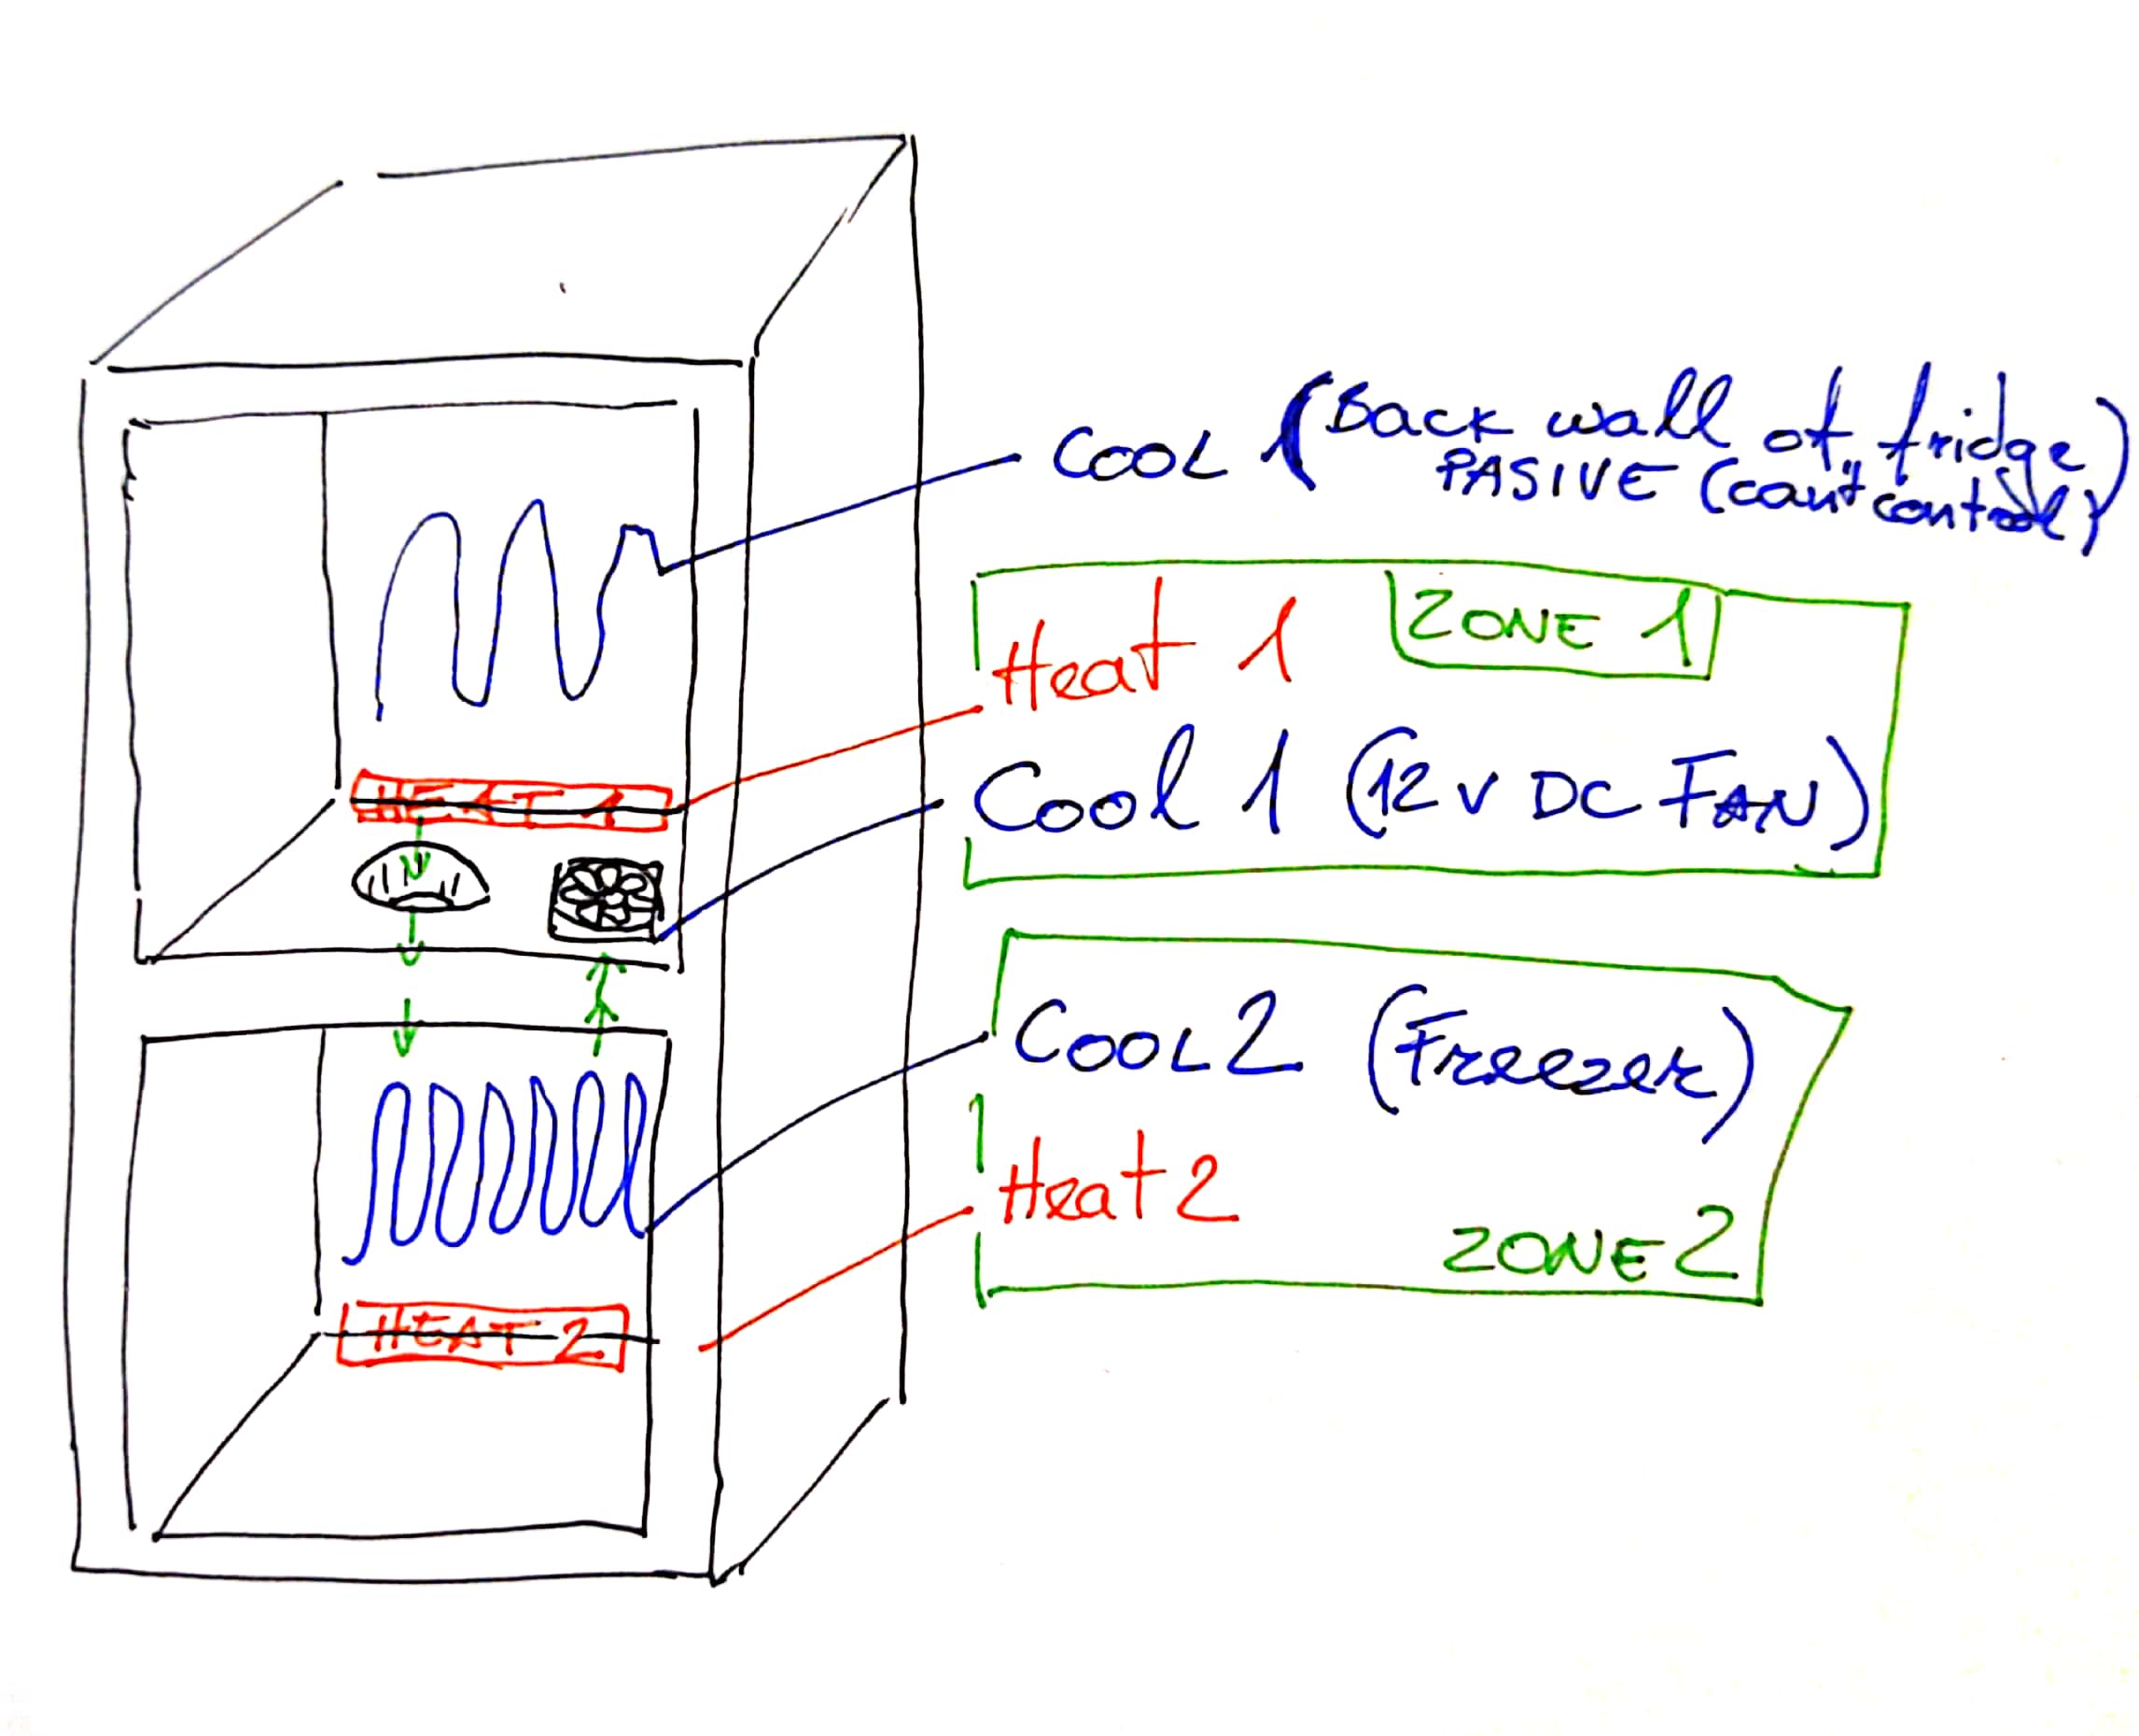 COOL 1 (Back wall of fridge)
PASIVE (can't control)
Heat 1
ZONE 1
Cool 1 (12V DC FAN)
HEAT 1
COOL 2 (Freezer)
Heat 2
ZONE 2
HEAT 2